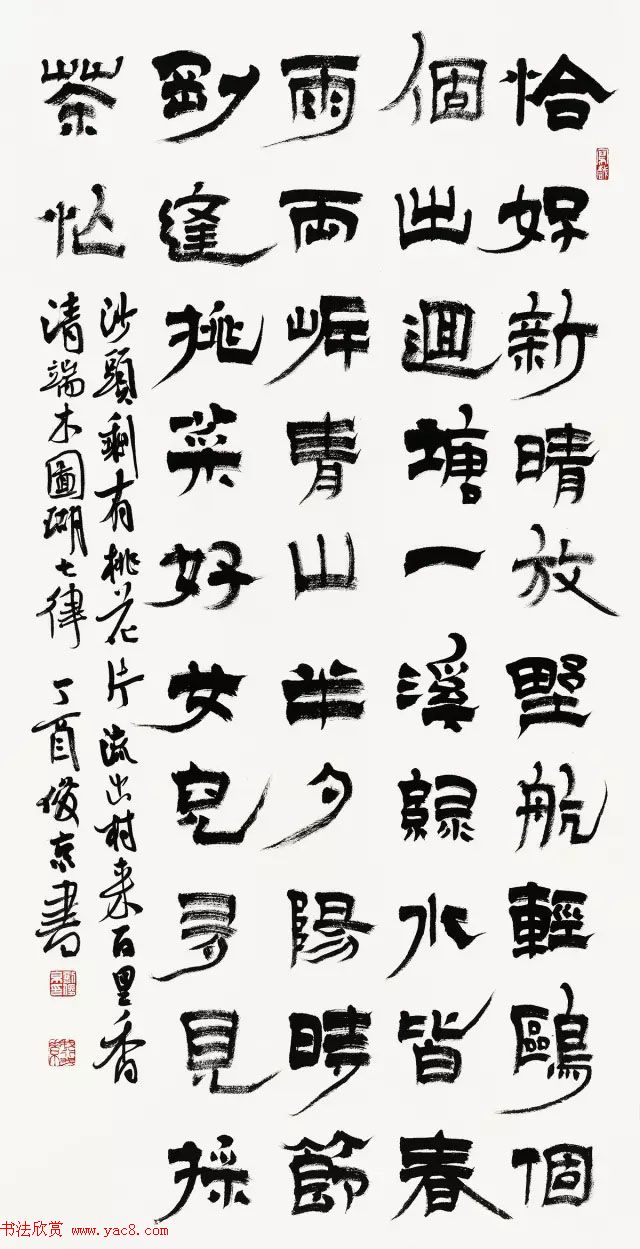 恰好新晴放野航輕鷗個
個出迴塘一溪綠水皆春
雨兩岸青山半夕陽時節
剛逢挑菜好女兒多見採
茶忙
沙頭剩有桃花片流出村来百里香
清端木國瑚七律 丁酉俊京書
书法欣赏 www.yac8.com